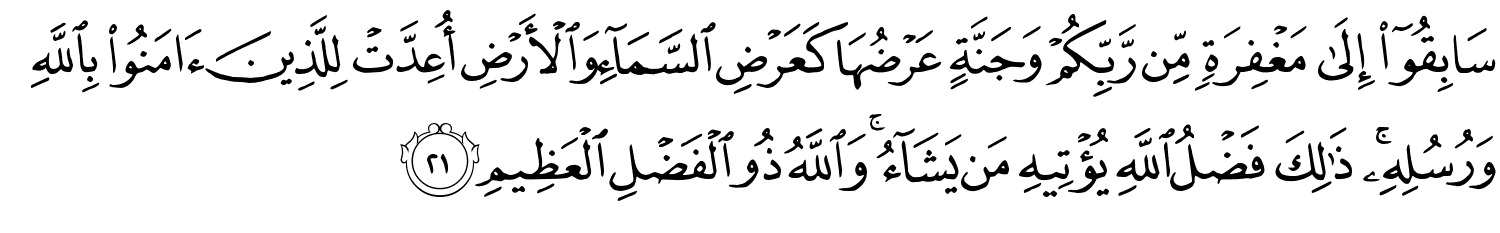 سَابِقُوٓا۟ إِلَىٰ مَغْفِرَةٍ مِّن رَّبِّكُمْ وَجَنَّةٍ عَرْضُهَا كَعَرْضِ ٱلسَّمَآءِ وَٱلْأَرْضِ أُعِدَّتْ لِلَّذِينَ ءَامَنُوا۟ بِٱللَّهِ
وَرُسُلِهِۦ ۚ ذَٰلِكَ فَضْلُ ٱللَّهِ يُؤْتِيهِ مَن يَشَآءُ ۚ وَٱللَّهُ ذُو ٱلْفَضْلِ ٱلْعَظِيمِ ٢١